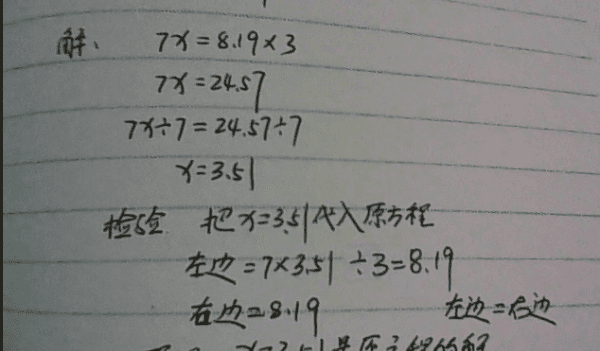 解、 7x=8.19×3
7x=24.57
7x÷7=24.57÷7
x=3.51
检验 把x=3.51代入原方程
左边=7×3.51÷3=8.19
右边=8.19 左边=右边
x=3.51是原方程的解